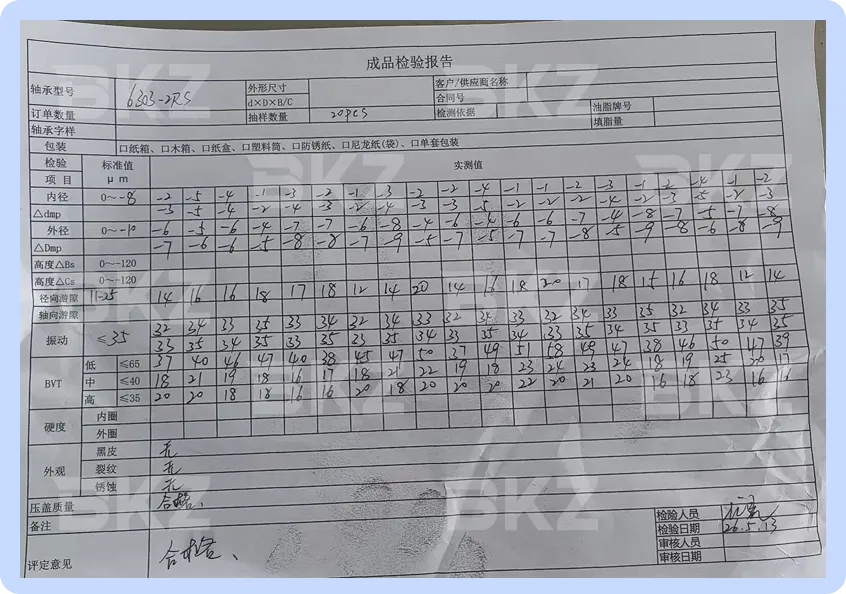 成品检验报告
轴承型号 6303-2RS 外形尺寸 d×D×B/C 客户/供应商名称
合同号
订单数量 抽样数量 20pcs 检测依据 油脂牌号
填脂量
轴承字样
包装 口纸箱、口木箱、口纸盒、口塑料筒、口防锈纸、口尼龙纸(袋)、口单套包装
检验项目 标准值 μm 实测值
内径 0~-8 -2 -5 -4 -1 -3 -2 -1 -3 -2 -2 -4 -1 -1 -2 -3 -1 -2 -4 -1 -2
△dmp -3 -5 -4 -2 -4 -3 -2 -4 -3 -3 -5 -2 -2 -2 -4 -2 -3 -5 -2 -3
外径 0~-10 -6 -5 -6 -4 -7 -7 -6 -8 -4 -6 -4 -6 -6 -7 -4 -8 -7 -5 -7 -8
△Dmp -7 -6 -6 -5 -8 -8 -7 -9 -5 -7 -5 -7 -7 -8 -5 -9 -8 -6 -8 -9
高度△Bs 0~-120
高度△Cs 0~-120
径向游隙 11-25 14 16 16 18 17 18 12 14 20 14 16 18 20 17 18 15 16 18 12 14
轴向游隙
振动 ≤35 32 34 33 35 33 34 32 34 33 32 34 33 32 34 33 35 32 34 33 35
33 35 34 35 33 35 33 35 34 33 35 34 33 35 34 35 33 35 34 35
BVT 低 ≤65 37 40 46 47 40 38 45 47 50 37 49 51 58 49 47 38 46 50 47 39
中 ≤40 18 21 19 18 16 17 18 21 22 19 18 23 24 23 24 18 19 25 20 17
高 ≤35 20 20 18 18 16 16 20 18 20 20 20 22 20 21 20 16 18 23 16 16
硬度 内圈
外圈
外观 黑皮 无
裂纹 无
锈蚀 无
压盖质量 合格、
备注
评定意见 合格、
检验人员
检验日期 26.5.13
审核人员
审核日期
BKZ
BKZ
BKZ
BKZ
BKZ
BKZ
BKZ
BKZ
BKZ